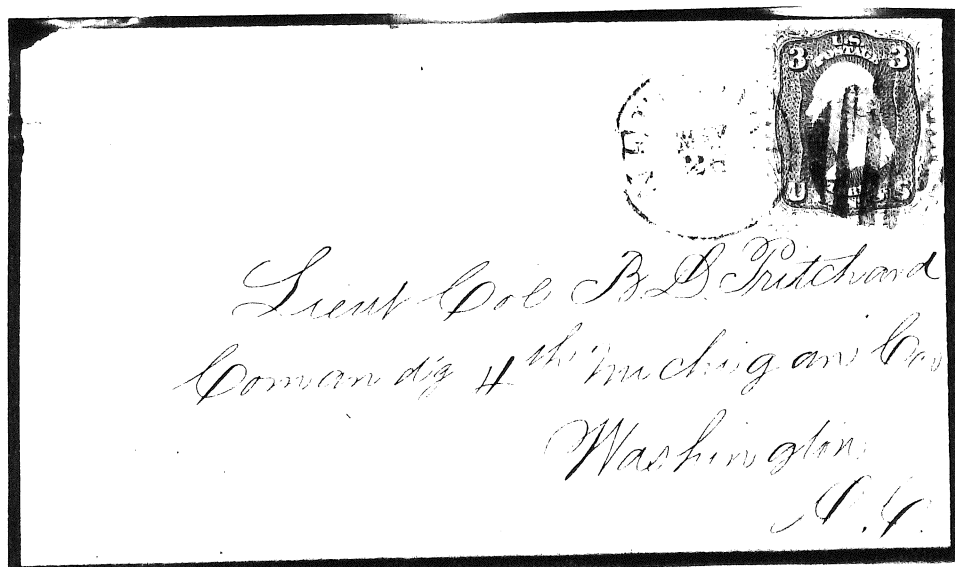 3 U.S. 3
POSTAGE
U S
MAY
26
Lieut Col B. D. Pritchard
Comandg 4th Michigan Cav
Washington
D.C.